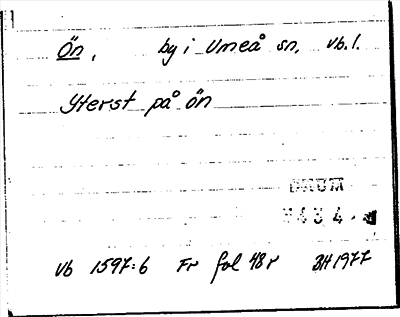 Ön, by i Umeå sn, vb.l.
Yterst på ön
DAUM
3434
Vb 1597:6 Fr fol 48r BH 1977